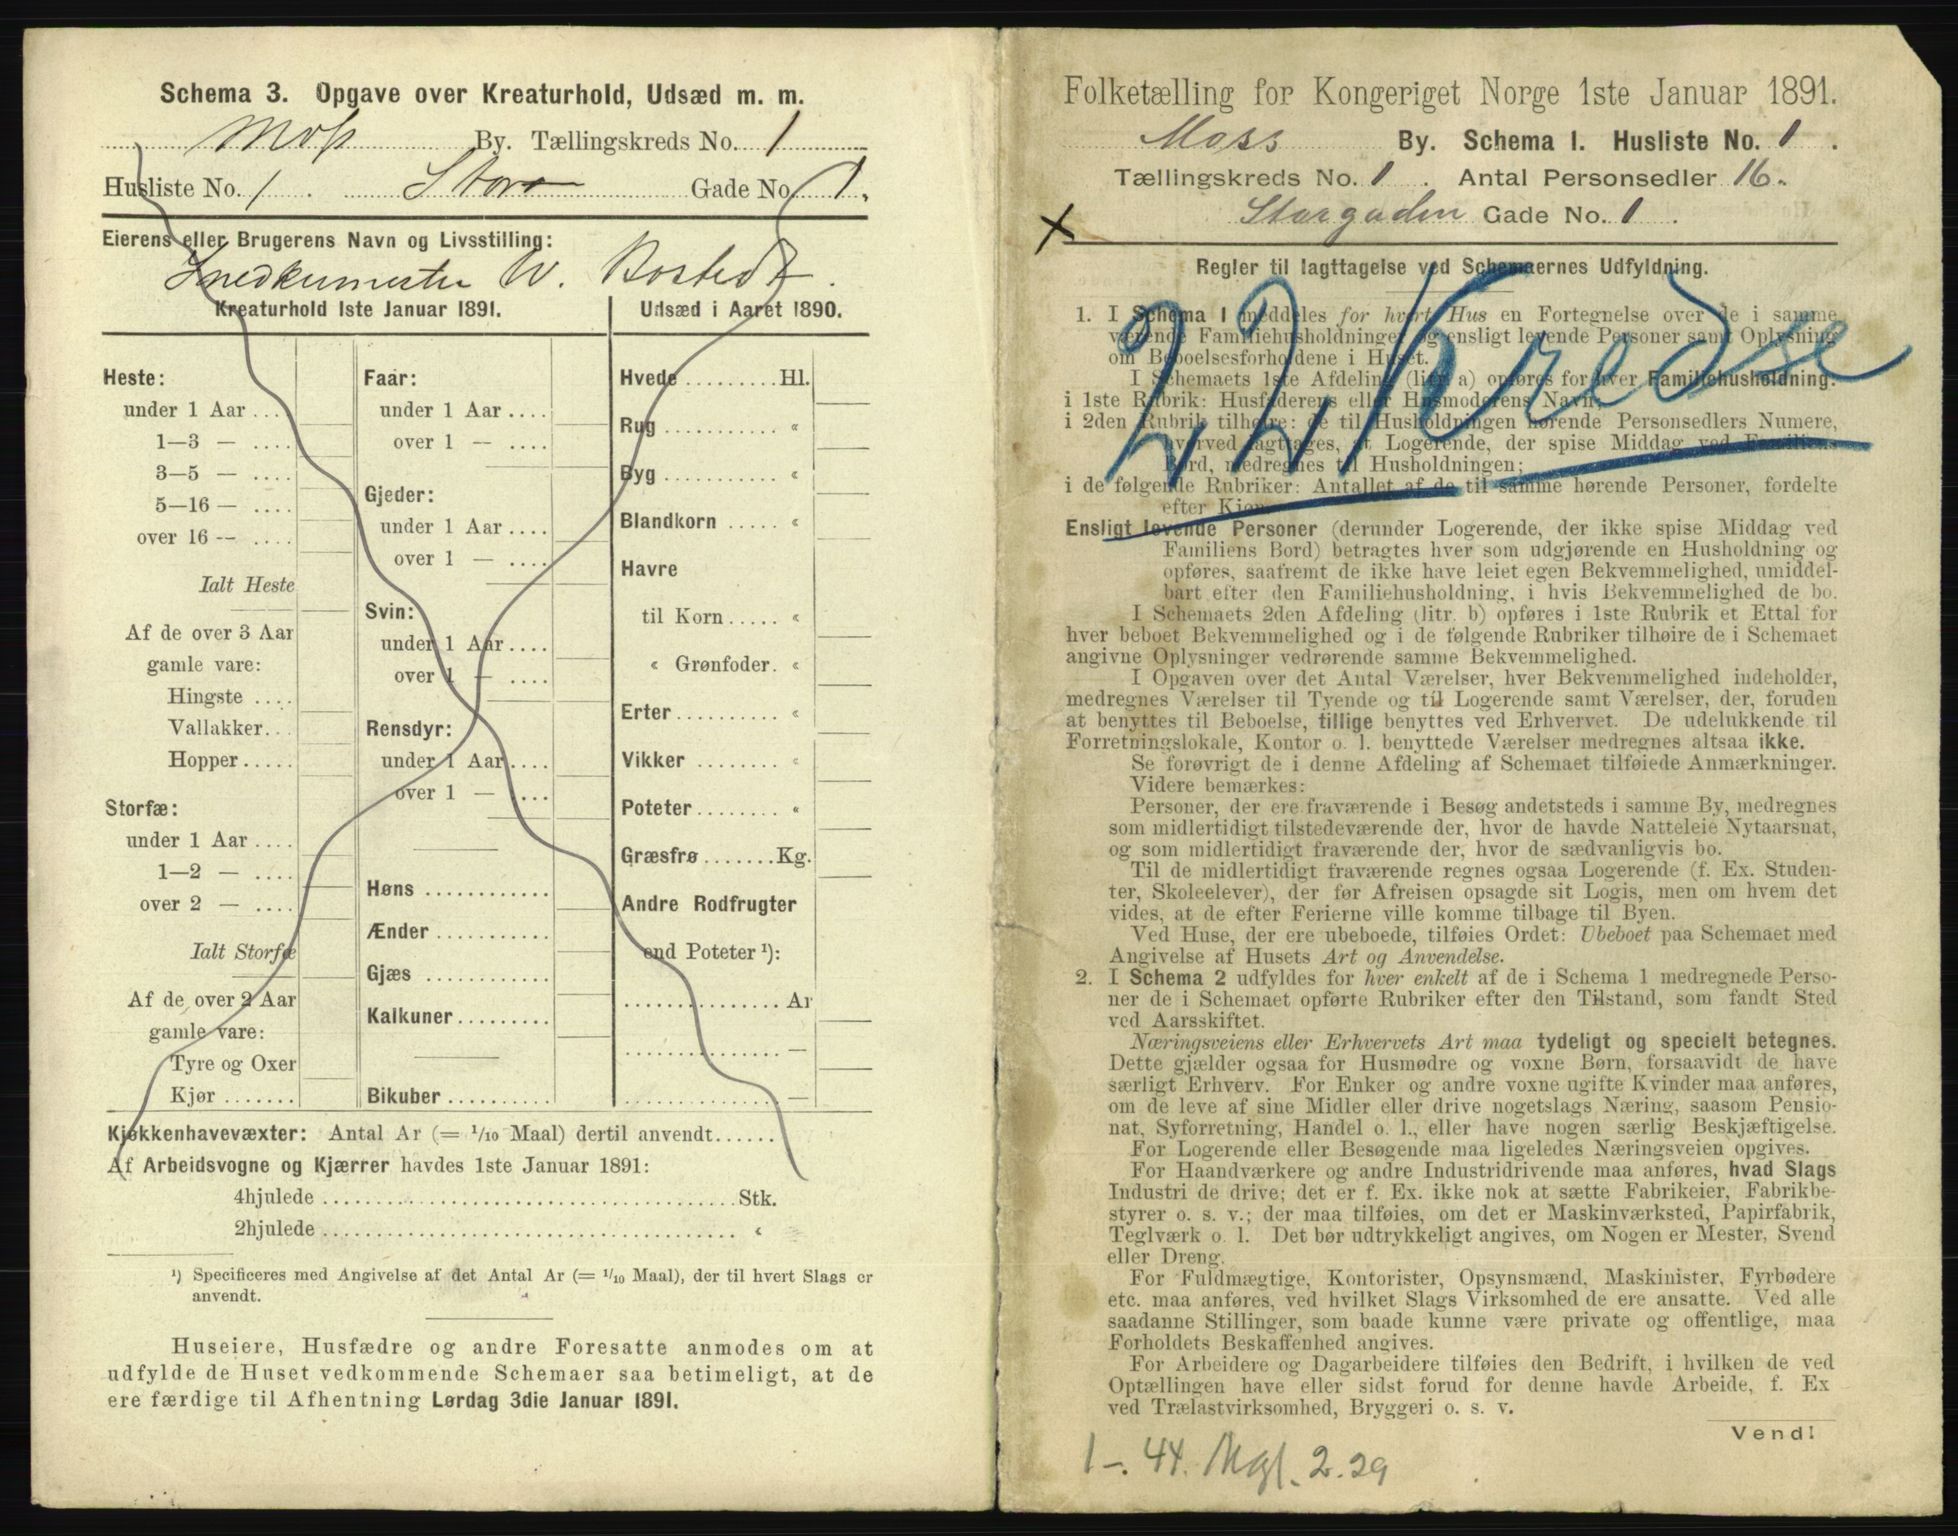 Schema 3. Opgave over Kreaturhold, Udsæd m. m.
Moss By. Tællingskreds No. 1
Husliste No. 1 . Stor Gade No. 1.
Eierens eller Brugerens Navn og Livsstilling:
Snedkermester W. Bostedt.
Kreaturhold 1ste Januar 1891.
Heste:
under 1 Aar ....
1—3 — ....
3—5 — ....
5—16 — ....
over 16 -- ....
Ialt Heste
Af de over 3 Aar
gamle vare:
Hingste ....
Vallakker...
Hopper.....
Storfæ:
under 1 Aar ....
1—2 — ....
over 2 — ....
Ialt Storfæ
Af de over 2 Aar
gamle vare:
Tyre og Oxer
Kjør .......
Faar:
under 1 Aar ....
over 1 — ....
Gjeder:
under 1 Aar ....
over 1 — ....
Svin:
under 1 Aar....
over 1 — ....
Rensdyr:
under 1 Aar....
over 1 — ....
Høns ...........
Ænder ..........
Gjæs ...........
Kalkuner.........
Bikuber ..........
Udsæd i Aaret 1890.
Hvede .........Hl.
Rug ........... «
Byg ........... «
Blandkorn ..... «
Havre
til Korn ..... «
« Grønfoder. «
Erter.......... «
Vikker ........ «
Poteter ........ «
Græsfrø .......Kg.
Andre Rodfrugter
end Poteter ¹):
............... Ar
............... —
............... —
Kjøkkenhavevæxter: Antal Ar (= ¹/₁₀ Maal) dertil anvendt......
Af Arbeidsvogne og Kjærrer havdes 1ste Januar 1891:
4hjulede ........................................Stk.
2hjulede ........................................ «
¹) Specificeres med Angivelse af det Antal Ar (= ¹/₁₀ Maal), der til hvert Slags er
anvendt.
Huseiere, Husfædre og andre Foresatte anmodes om at
udfylde de Huset vedkommende Schemaer saa betimeligt, at de
ere færdige til Afhentning Lørdag 3die Januar 1891.
Folketælling for Kongeriget Norge 1ste Januar 1891.
Moss By. Schema I. Husliste No. 1 .
Tællingskreds No. 1 . Antal Personsedler 16.
x Storgaden Gade No. 1 .
Regler til Iagttagelse ved Schemaernes Udfyldning.
22 Kredse
1. I Schema I meddeles for hvert Hus en Fortegnelse over de i samme
værende Familiehusholdninger og ensligt levende Personer samt Oplysning
om Beboelsesforholdene i Huset.
I Schemaets 1ste Afdeling (litr. a) opføres for hver Familiehusholdning:
i 1ste Rubrik: Husfaderens eller Husmoderens Navn,
i 2den Rubrik tilhøire: de til Husholdningen hørende Personsedlers Numere,
hvorved iagttages, at Logerende, der spise Middag ved Familiens
Bord, medregnes til Husholdningen;
i de følgende Rubriker: Antallet af de til samme hørende Personer, fordelte
efter Kjøn.
Ensligt levende Personer (derunder Logerende, der ikke spise Middag ved
Familiens Bord) betragtes hver som udgjørende en Husholdning og
opføres, saafremt de ikke have leiet egen Bekvemmelighed, umiddel-
bart efter den Familiehusholdning, i hvis Bekvemmelighed de bo.
I Schemaets 2den Afdeling (litr. b) opføres i 1ste Rubrik et Ettal for
hver beboet Bekvemmelighed og i de følgende Rubriker tilhøire de i Schemaet
angivne Oplysninger vedrørende samme Bekvemmelighed.
I Opgaven over det Antal Værelser, hver Bekvemmelighed indeholder,
medregnes Værelser til Tyende og til Logerende samt Værelser, der, foruden
at benyttes til Beboelse, tillige benyttes ved Erhvervet. De udelukkende til
Forretningslokale, Kontor o. l. benyttede Værelser medregnes altsaa ikke.
Se forøvrigt de i denne Afdeling af Schemaet tilføiede Anmærkninger.
Videre bemærkes:
Personer, der ere fraværende i Besøg andetsteds i samme By, medregnes
som midlertidigt tilstedeværende der, hvor de havde Natteleie Nytaarsnat,
og som midlertidigt fraværende der, hvor de sædvanligvis bo.
Til de midlertidigt fraværende regnes ogsaa Logerende (f. Ex. Studen-
ter, Skoleelever), der før Afreisen opsagde sit Logis, men om hvem det
vides, at de efter Ferierne ville komme tilbage til Byen.
Ved Huse, der ere ubeboede, tilføies Ordet: Ubeboet paa Schemaet med
Angivelse af Husets Art og Anvendelse.
2. I Schema 2 udfyldes for hver enkelt af de i Schema 1 medregnede Perso-
ner de i Schemaet opførte Rubriker efter den Tilstand, som fandt Sted
ved Aarsskiftet.
Næringsveiens eller Erhvervets Art maa tydeligt og specielt betegnes.
Dette gjælder ogsaa for Husmødre og voxne Børn, forsaavidt de have
særligt Erhverv. For Enker og andre voxne ugifte Kvinder maa anføres,
om de leve af sine Midler eller drive nogetslags Næring, saasom Pensio-
nat, Syforretning, Handel o. l., eller have nogen særlig Beskjæftigelse.
For Logerende eller Besøgende maa ligeledes Næringsveien opgives.
For Haandværkere og andre Industridrivende maa anføres, hvad Slags
Industri de drive; det er f. Ex. ikke nok at sætte Fabrikeier, Fabrikbe-
styrer o. s. v.; der maa tilføies, om det er Maskinværksted, Papirfabrik,
Teglværk o. l. Det bør udtrykkeligt angives, om Nogen er Mester, Svend
eller Dreng.
For Fuldmægtige, Kontorister, Opsynsmænd, Maskinister, Fyrbødere
etc. maa anføres, ved hvilket Slags Virksomhed de ere ansatte. Ved alle
saadanne Stillinger, som baade kunne være private og offentlige, maa
Forholdets Beskaffenhed angives.
For Arbeidere og Dagarbeidere tilføies den Bedrift, i hvilken de ved
Optællingen have eller sidst forud for denne havde Arbeide, f. Ex
ved Trælastvirksomhed, Bryggeri o. s. v.
Vend!
1 - . 44. Mgl. 2. 29